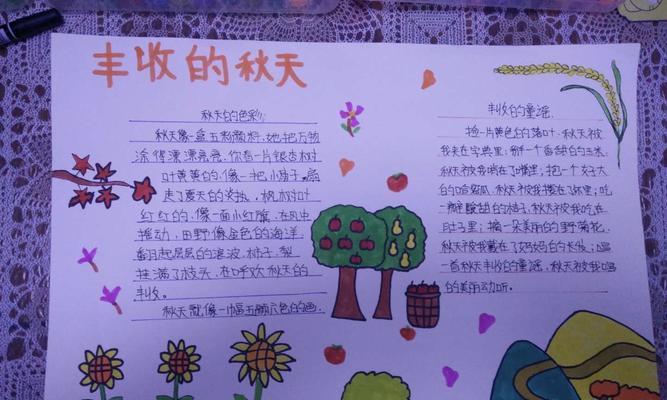 丰收的秋天
秋天的色彩
秋天像一盒五彩颜料,她把万物
涂得漂漂亮亮,你看一片银杏树
叶黄黄的,像一把小扇子,扇
走了夏天的炎热,枫树叶
红红的,像一面小红旗,在风中
摇动,田野像金色的海洋
翻起层层的滚波,柿子,梨
挂满了枝头,在呼欢秋天的
丰收。
秋天就像一幅五颜六色的画.
丰收的童谣
捡一片黄色的落叶,秋天被
我夹在字典里;掰一个香甜的玉米
秋天被我啃在了嘴里;抱一个大大
的哈密瓜,秋天被我搂在了怀里;吃
一瓣酸甜的桔子,秋天被我吃在
肚子里;摘一朵美丽的野菊花,
秋天被我戴在了妈妈的长发;唱
一首秋天丰收的童谣,秋天被我唱
的美丽动听。